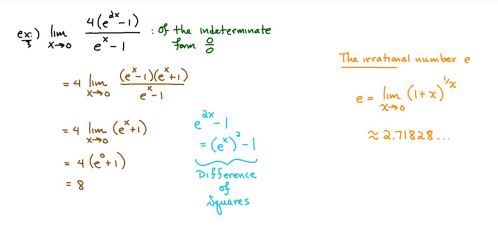 ex:) lim 4(e^{2x}-1) / e^x-1 : of the indeterminate
5 x→0 form 0/0
= 4 lim (e^x-1)(e^x+1) / e^x-1
x→0
= 4 lim (e^x+1)
x→0
= 4(e^0+1)
= 8
e^{2x}-1
= (e^x)^2-1
Difference
of
Squares
The irrational number e
e = lim (1+x)^{1/x}
x→0
≈ 2.71828...